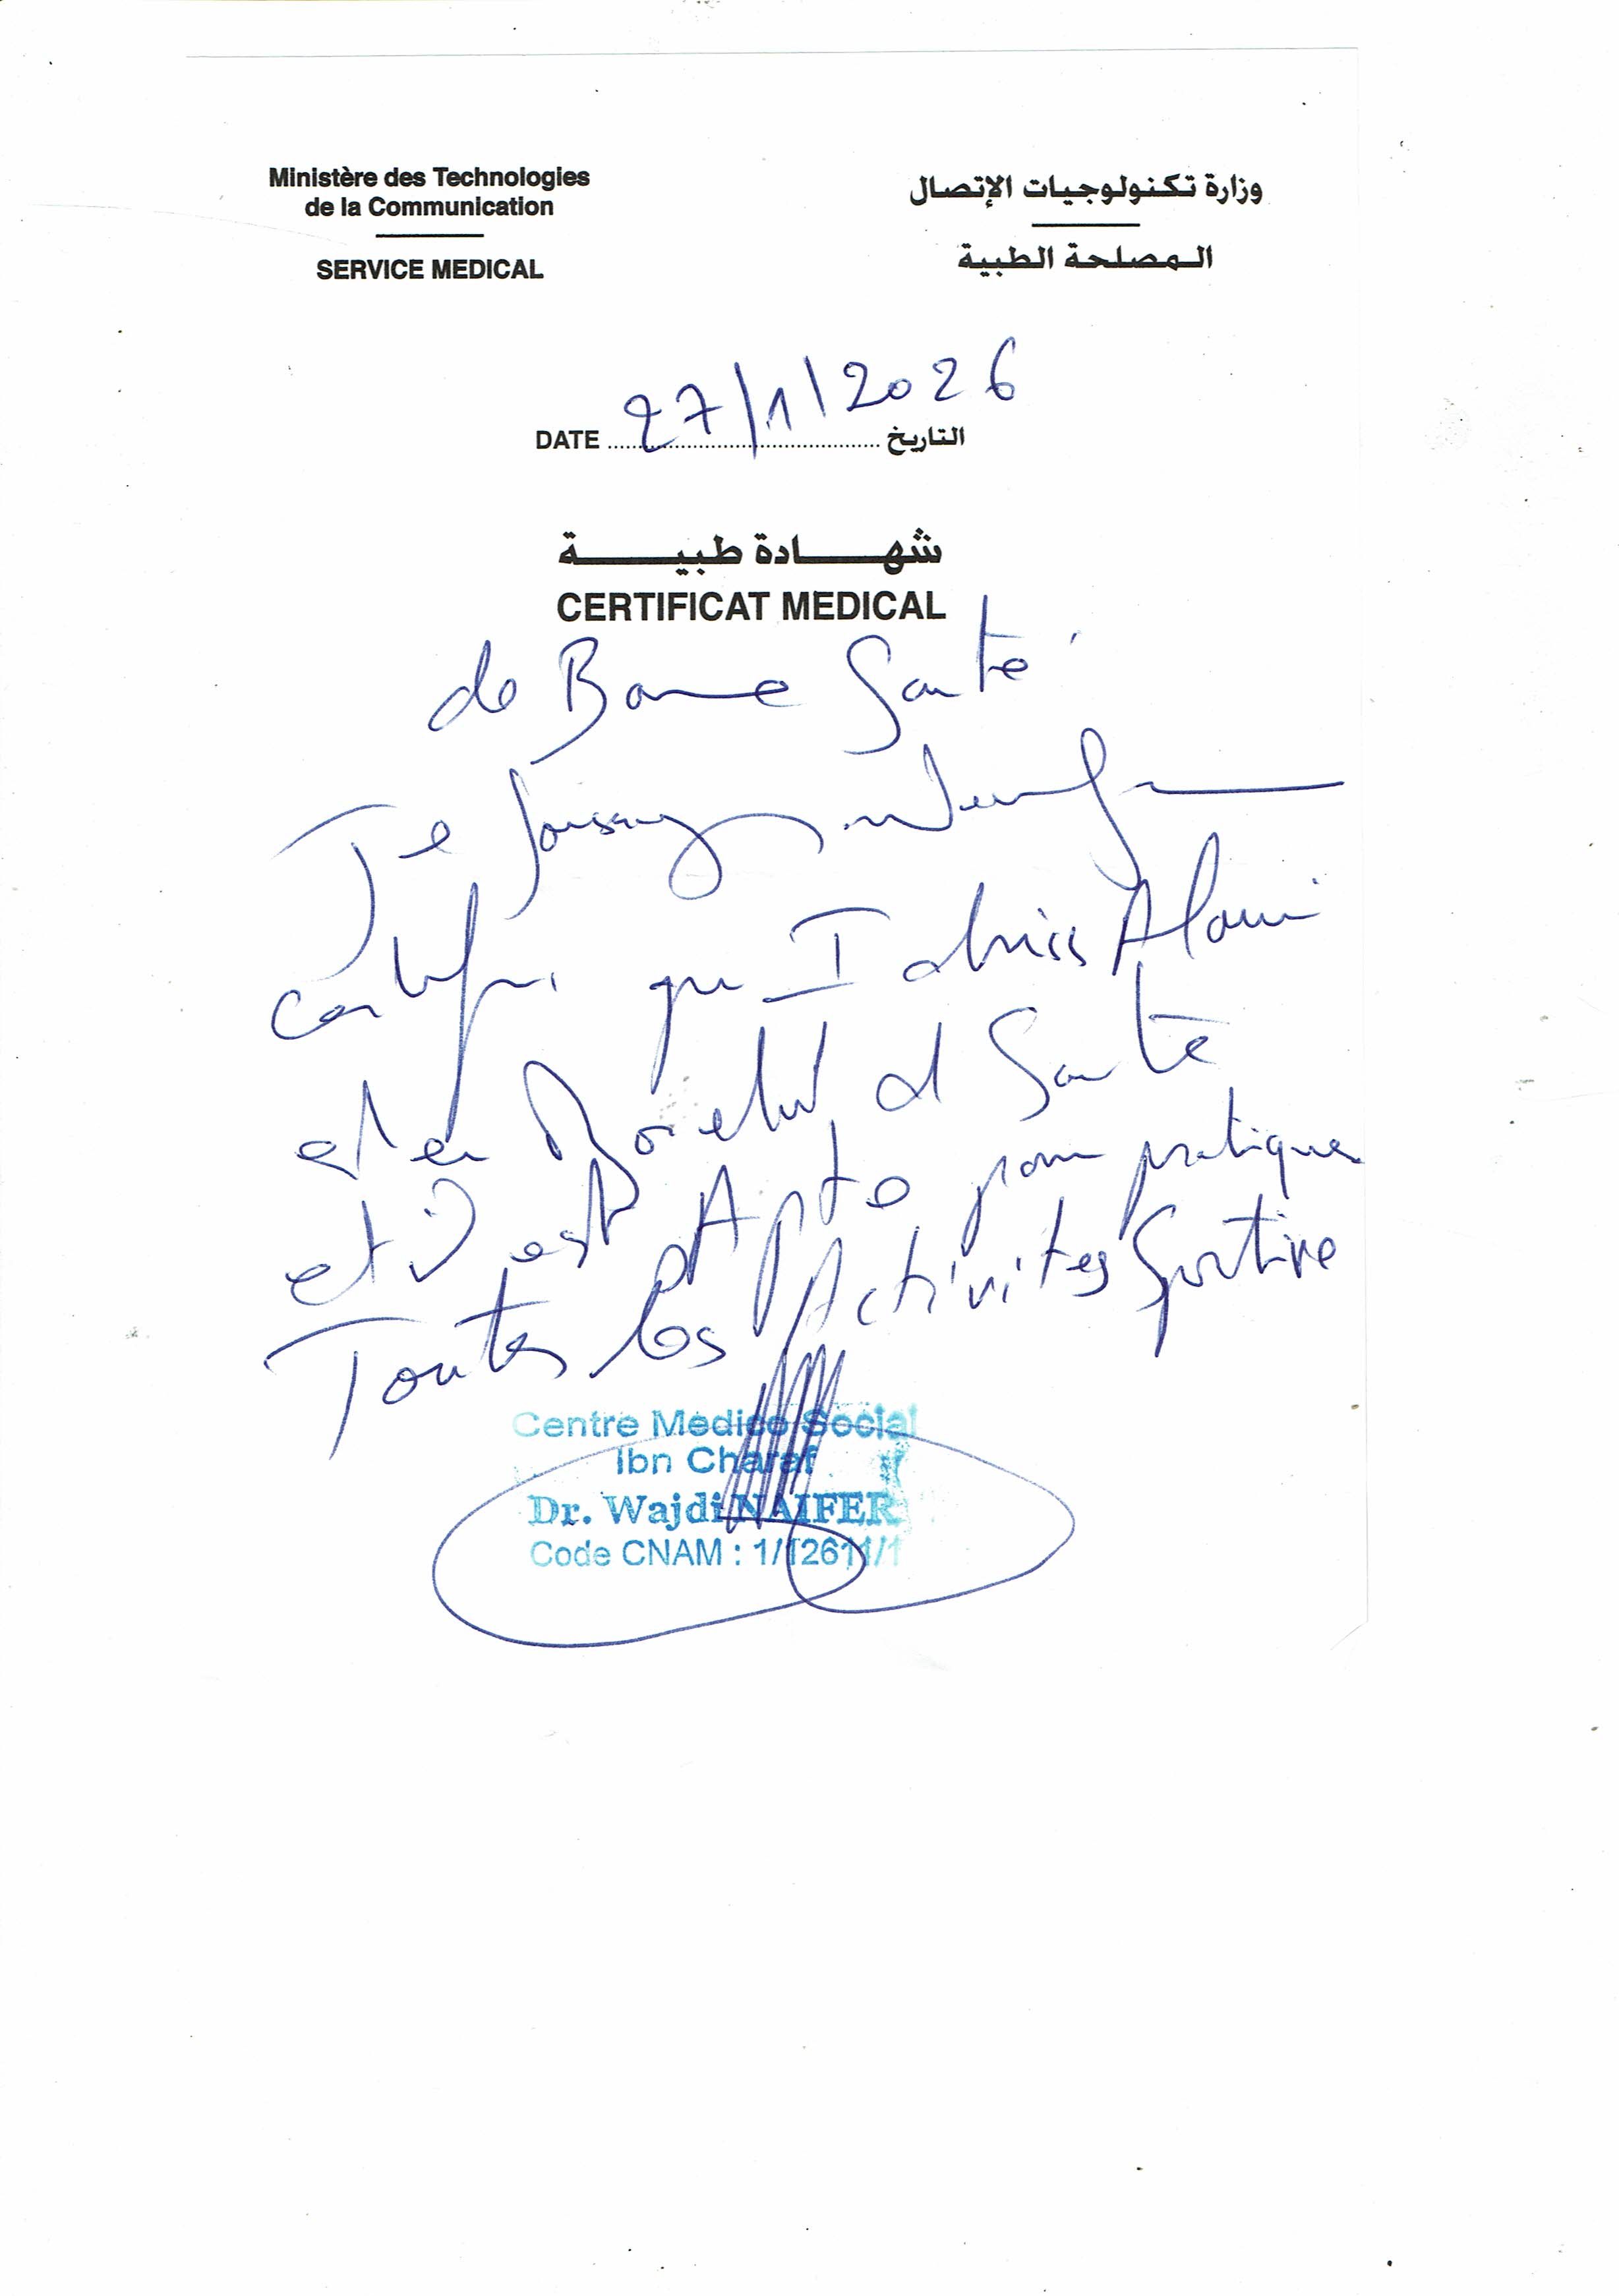 Ministère des Technologies
de la Communication
SERVICE MEDICAL
وزارة تكنولوجيات الإتصال
المصلحة الطبية
DATE 27/1/2026 التاريخ
شهادة طبية
CERTIFICAT MEDICAL
de Bonne Santé
Je soussigné
certifie que Idriss Alaoui
et en et Santé
et il est Apte pour pratiquer
Toutes les Activités Sportive
Centre Medico Social
Ibn Charaf
Dr. Wajdi NAIFER
Code CNAM : 1/12611/1